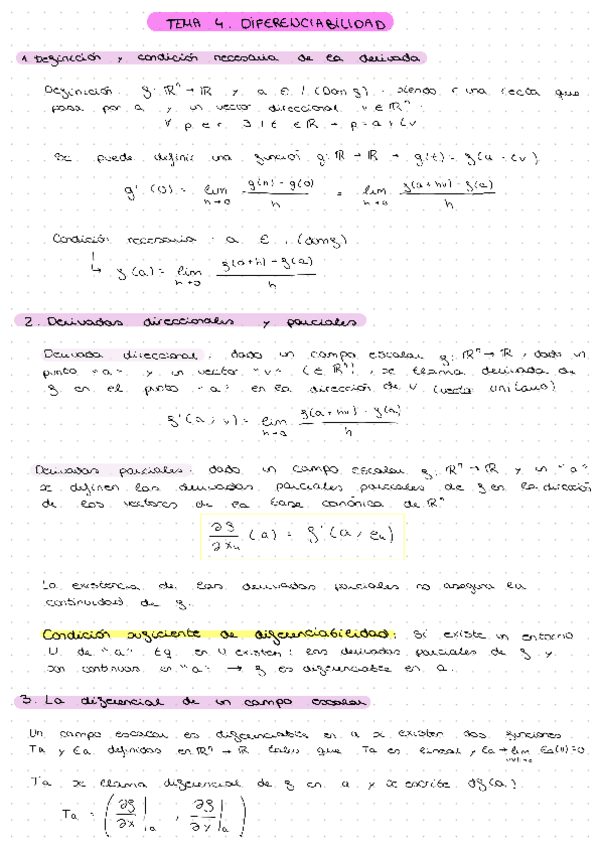 TEMA 4. DIFERENCIABILIDAD
1. Definición y condición necesaria de la derivada
Definición: f: ℝⁿ → ℝ y a ∈ (Dom f). siendo r una recta que
pasa por a y un vector direccional v ∈ ℝⁿ:
∀ p ∈ r ∃ t ∈ ℝ → p = a + tv
Se puede definir una función g: ℝ → ℝ → g(t) = f(a + tv)
g'(0) = lim h→0 (g(h) - g(0)) / h = lim h→0 (f(a+hv) - f(a)) / h
Condición necesaria: a ∈ (dom f)
↳ f(a) = lim h→0 (f(a+h) - f(a)) / h
2. Derivadas direccionales y parciales
Derivada direccional: dado un campo escalar f: ℝⁿ → ℝ, dado un
punto "a" y un vector "v" (∈ ℝⁿ), se llama derivada de
f en el punto "a" en la dirección de v (vector unitario)
f'(a; v) = lim h→0 (f(a+hv) - f(a)) / h
Derivadas parciales: dado un campo escalar f: ℝⁿ → ℝ y un "a"
se definen las derivadas parciales de f en la dirección
de los vectores de la base canónica de ℝⁿ
∂f/∂xₖ (a) = f'(a, eₖ)
La existencia de las derivadas parciales no asegura la
continuidad de f.
Condición suficiente de diferenciabilidad: Si existe un entorno
U de "a" tq en U existen las derivadas parciales de f y
son continuas en "a" → f es diferenciable en a.
3. La diferencial de un campo escalar
Un campo escalar es diferenciable en a si existen dos funciones
Ta y Ea definidas en ℝⁿ → ℝ tales que Ta es lineal y Ea → lim ‖v‖→0 Ea(v) = 0.
Ta se llama diferencial de f en a y se escribe df(a)
Ta = (∂f/∂x |a , ∂f/∂y |a)